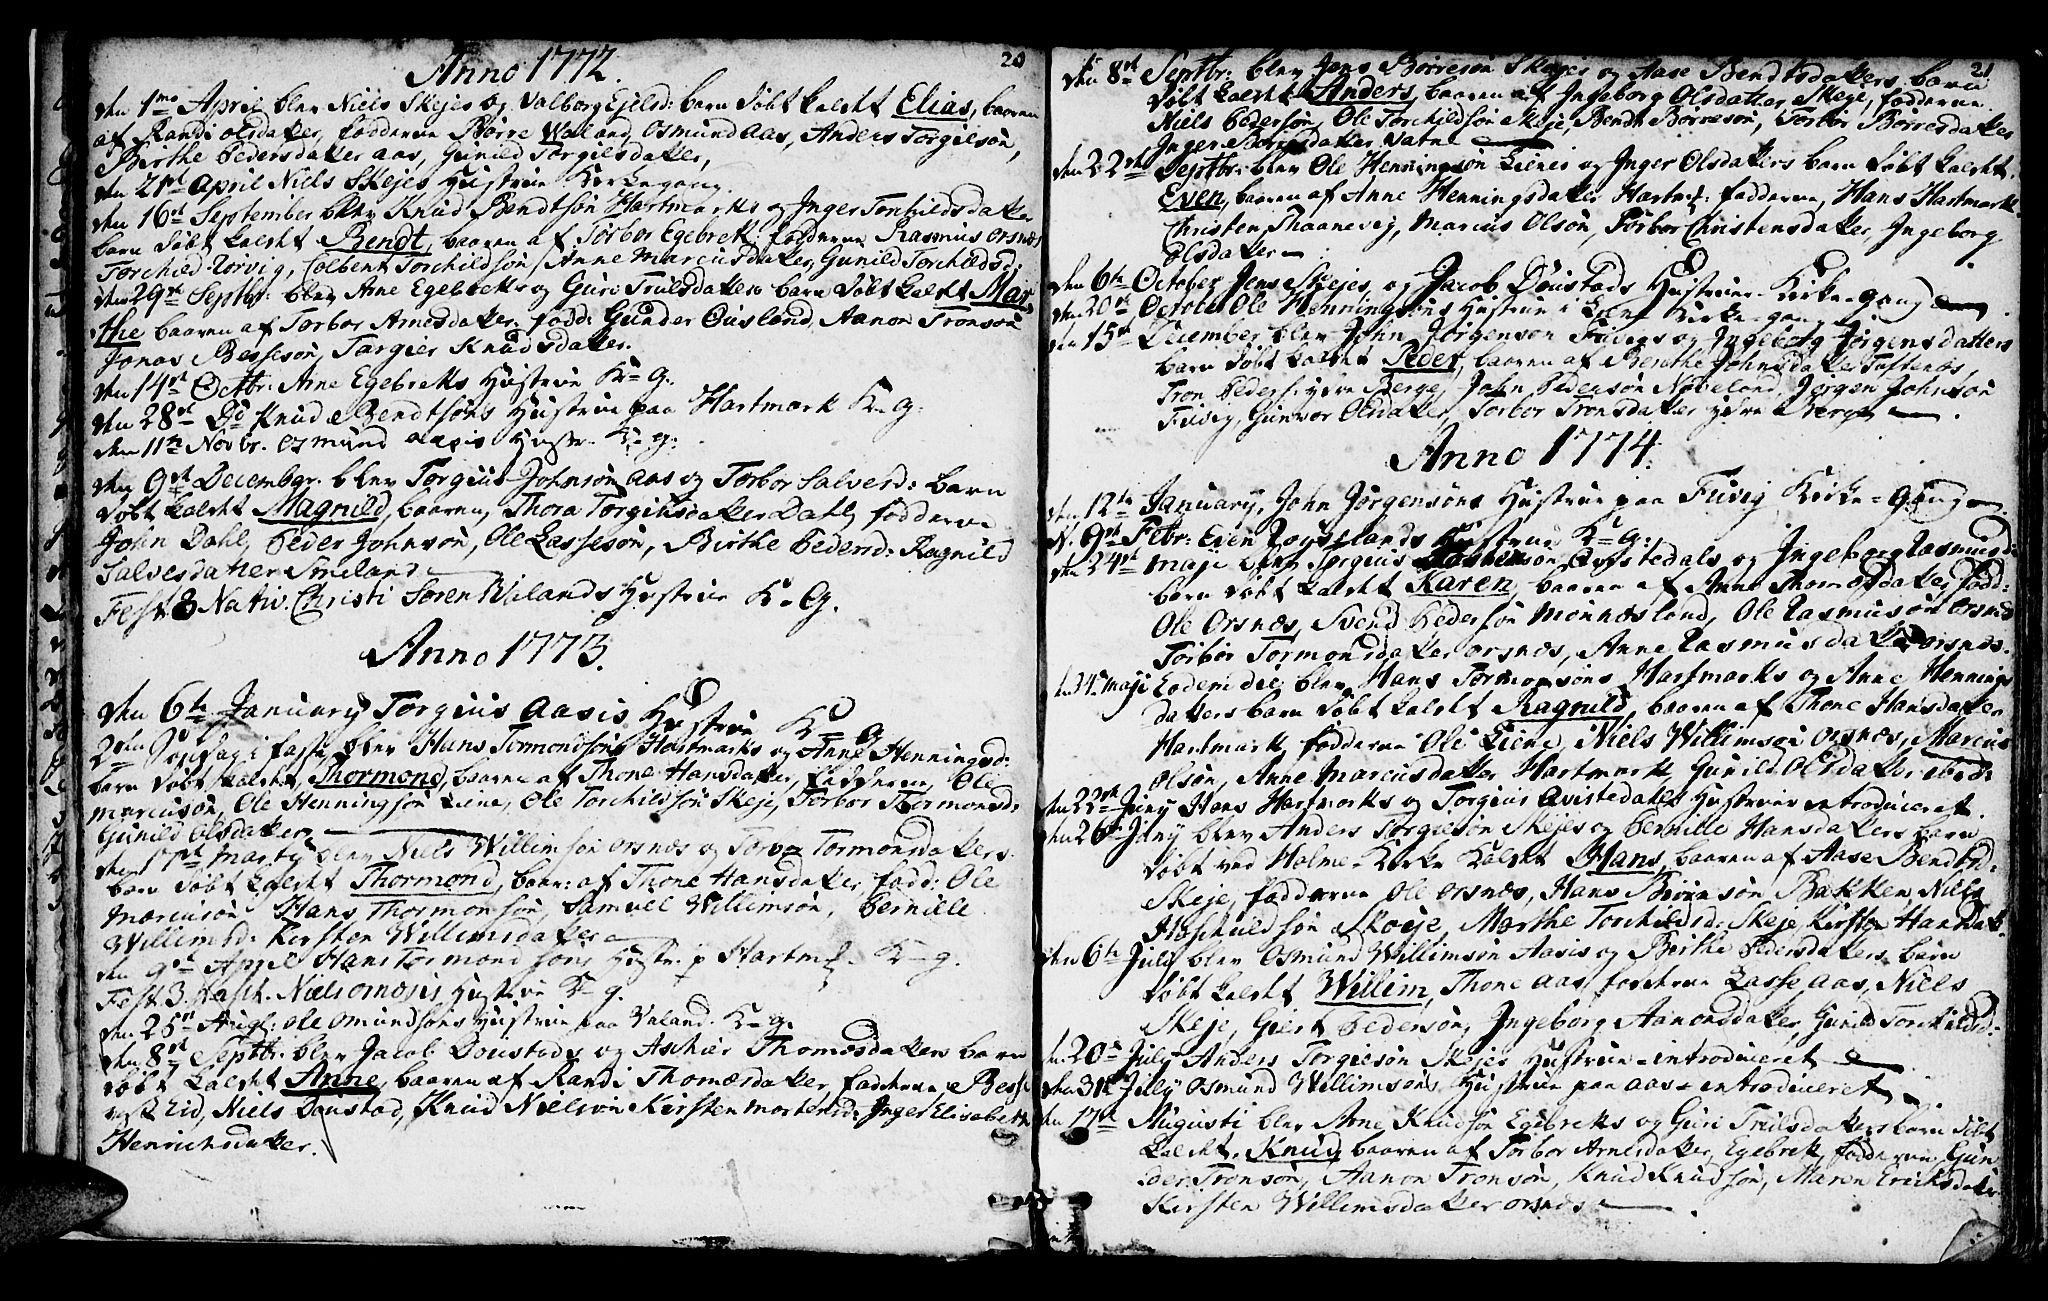 20
Anno 1772.
den 1mo April blev Niels Skejes og Valborg Ejelsd: barn døbt kaldet Elias, baaren
af Randi olsdatter, fadderne Børre Valand, Osmund Aas, Anders Torgilsøn,
Birthe Pedersdatter Aas, Gunild Torgilsdatter,
den 21de April Niels Skejes Hustrue Kirkegang.
den 16de September blev Knud Bendtsøn Hartmarks og Inger Torchildsdatter
barn døbt kaldet Bendt, baaren af Torbor Egebrek, fadderne Rasmus Orsnes
Torchild Torvig, Colbent Torchildsøn, Anne Marcusdatter, Gunild Torchildsd:
den 29de Septbr: blev Arne Egebreks og Guri Trulsdatters barn døbt kaldet Mar-
the baaren af Torbor Arnesdatter. fadd: Gunder Ousland, Aanon Tronsøn
Jonas Bessesøn, Targier Knudsdatter.
den 14de Octbr: Arne Egebreks Hustrue K-G.
den 28de Do Knud Bendtsøns Hustrue paa Hartmark K-G:
den 11te Novbr. Osmund Aasis Hustr. K-g:
den 9de Decembr. blev Torgius Johnsøn Aas og Torbor Salvesd: barn
døbt kaldet Magnild, baaren, Thora Torgiusdatter Dahl, fadderne
John Dahl, Peder Johnsøn, Ole Lassesøn, Birthe Pedersd: Ragnild
Salvesdatter Smeland
Fest 3 Nativ. Christi Søren Vilands Hustrue K-G.
Anno 1773.
den 6te January Torgius Aasis Hustrue K-G
2den Søndag i faste blev Hans Tormondsøns Hartmarks og Anne Henningsd:
barn døbt kaldet Thormond, baaren af Thone Hansdatter, fadderne, Ole
Marcusøn, Ole Henningsøn Liene, Ole Torchildsøn Skeje, Torbor Tormonsd:
Gunild Olsdatter
den 17de Marty blev Niels Willimsøn Orsnes og Torbor Tormonsdatters
barn døbt kaldet Thormond, baar: af Thone Hansdatter, fadd: Ole
Marcusøn Hans Thormonsøn, Samuel Willimsøn, Pernille
Willimsd: Kirsten Willimsdatter
den 9de April Hans Tormondsøns Hustr: p Hartm: K-g.
Fest 3 Pasch. Niels Orsnesis Hustrue K-g.
den 25de Augl: Ole Omundsøns Hustrue paa Valand. K-g.
den 8de Septbr: blev Jacob Doustads og Aschier Thomesdatters barn
døbt kaldet Anne, baaren af Randi Thomesdatter, fadderne Besse
Eid, Niels Doustad, Knud Nielsøn Kirsten Mortensd: Inger Elisabeth
Henrichsdatter.
21
den 8de Septbr: blev Jens Børresøn Skejes og Aase Bendtsdatters barn
døbt kaldet Anders, baaren af Ingeborg Olsdatter Skeje, fadderne.
Niels Pedersøn, Ole Torchildsøn Skeje, Bendt Børresøn, Torbor Børresdatter
Inger Børresdatter Vatne
den 22de Septbr: blev Ole Henningsøn Lienes og Inger Olsdatters barn døbt kaldet
Even, baaren af Anne Henningsdatter Hartm: fadderne, Hans Hartmark
Christen Thaanevig, Marcus Olsøn, Torbor Christensdatter, Ingeborg
Olsdatter
den 6te October Jens Skejes, og Jacob Doustads Hustruer Kirke-gang
den 20de October Ole Henningsøns Hustrue i Liene Kirke-gang
den 15de December blev John Jørgensøn Fuvegs og Ingeborg Jørgensdatters
barn døbt kaldet Peder, baaren af Berthe Johnsdatter Toftenes,
Tron Peders: ydre Berge, John Pedersøn Noveland, Jørgen Johnsøn
Fuvig, Gunvor Olsdatter, Torbor Tronsdatter ydre Berge
Anno 1774.
den 12te January, John Jørgensøns Hustrue paa Fuvig Kirke-Gang
N. 9de Febr: Even Røyselands Hustrue K-g:
den 24de Maji blev Torgius Qvistedals og Ingeborg Rasmusd:
barn døbt kaldet Karen, baaren af Anne Thomesdatter, fadd:
Ole Orsnes, Svend Pedersøn Monnesland, Ole Rasmusøn Orsnes
Torbor Tormonsdatter Orsnes, Anne Rasmusdatter Orsnes.
den 24 Maji Eodem die blev Hans Tormonsøns Hartmarks og Anne Hennings
datters barn døbt kaldet Ragnild, baaren af Thone Hansdatter
Hartmark, fadderne Ole Liene, Niels Willimsøn Orsnes, Marcus
Olsøn, Anne Marcusdatter Hartmark, Gunild Olsdatter ibid:
den 22de Juny Hans Hartmarks og Torgius Qvistedals Hustruer introduceret.
den 26de Juny blev Anders Torgilsøn Skejes og Pernille Hansdatters barn
døbt ved Holme-Kirke kaldet Hans, baaren af Aase Bendtsd:
Skeje, fadderne Ole Orsnes, Hans Biørnsøn Bakken, Niels
Aschuldsøn Skoje, Marthe Torchildsd: Skeje, Kirsten Hansdatt.
den 6te July blev Osmund Willimsøn Aasis og Birthe Pedersdatters barn
døbt kaldet Willim, Thone Aas, fadderne Lasse Aas, Niels
Skeje, Giert Pedersøn, Ingeborg Aanonddatter, Gunild Torchildsd:
den 20de July Anders Torgilsøn Skejes Hustrue introduceret
den 31te July Osmund Willimsøns Hustrue paa Aas introduceret
den 17de Augusti blev Arne Knudsøn Egebreks og Guri Trulsdatters barn døbt
kaldet, Knud, baaren af Torbor Arnesdatter Egebrek, fadderne Gun
der Tronsøn, Aanon Tronsøn, Knud Knudsøn, Maren Ericksdatter
Kirsten Willimsdatter Orsnes